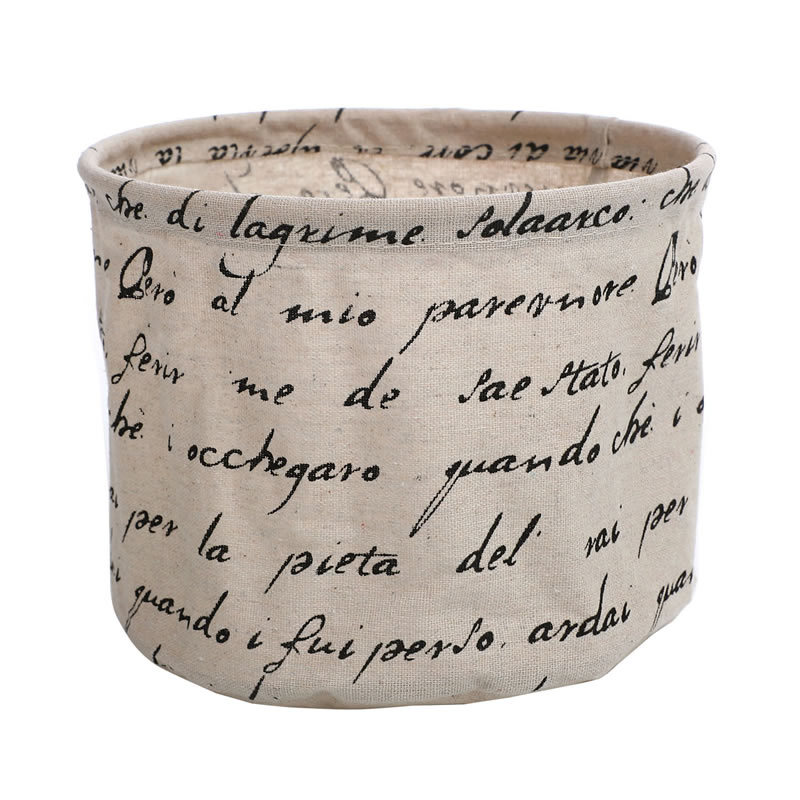 che. di lagrime. solaarco. che
Però al mio parernore. Però
ferir me de sae stato. ferir
chè. i occhegaro quando chè. i
per la pieta del rai per
quando i fui perso. ardai